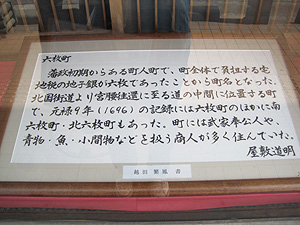 六枚町
藩政初期からある町人町で、町全体で負担する宅
地税の地子銀が六枚であったことから町名となった。
北国街道より宮腰往還に至る道の中間に位置する町
で、元禄9年(1696)の記録には六枚町のほかに南
六枚町・北六枚町もあった。町には武家奉公人や、
青物・魚・小間物などを扱う商人が多く住んでいた。
屋敷道明
越田 繁風 書